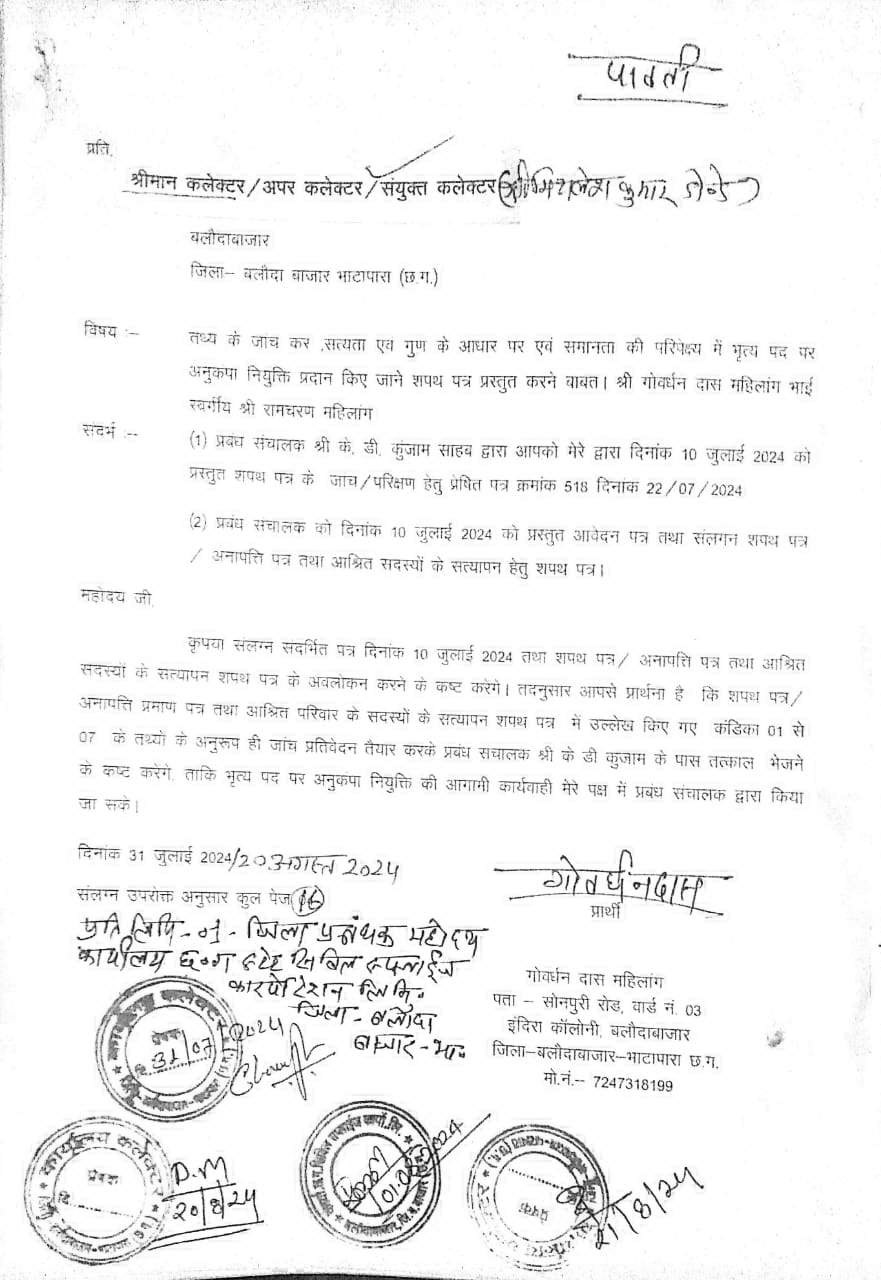 पावती
प्रति,
श्रीमान कलेक्टर/अपर कलेक्टर/संयुक्त कलेक्टर (श्री मिथलेश कुमार डोन्डे)
बलौदाबाजार
जिला– बलौदा बाजार भाटापारा (छ.ग.)
विषय :– तथ्य के जाच कर ,सत्यता एवं गुण के आधार पर एवं समानता की परिपेक्ष्य में भृत्य पद पर
अनुकपा नियुक्ति प्रदान किए जाने शपथ पत्र प्रस्तुत करने बाबत। श्री गोवर्धन दास महिलांग भाई
स्वर्गीय श्री रामचरण महिलांग
संदर्भ :-- (1) प्रबंध संचालक श्री के. डी. कुंजाम साहब द्वारा आपको मेरे द्वारा दिनांक 10 जुलाई 2024 को
प्रस्तुत शपथ पत्र के जाच/परिक्षण हेतु प्रेषित पत्र क्रमांक 518 दिनांक 22/07/2024
(2) प्रबंध संचालक को दिनांक 10 जुलाई 2024 को प्रस्तुत आवेदन पत्र तथा संलगन शपथ पत्र
/ अनापत्ति पत्र तथा आश्रित सदस्यों के सत्यापन हेतु शपथ पत्र।
महोदय जी,
कृपया संलग्न संदर्भित पत्र दिनांक 10 जुलाई 2024 तथा शपथ पत्र/ अनापत्ति पत्र तथा आश्रित
सदस्यों के सत्यापन शपथ पत्र के अवलोकन करने के कष्ट करेंगे। तदनुसार आपसे प्रार्थना है कि शपथ पत्र/
अनापत्ति प्रमाण पत्र तथा आश्रित परिवार के सदस्यों के सत्यापन शपथ पत्र में उल्लेख किए गए कंडिका 01 से
07 के तथ्यों के अनुरूप ही जांच प्रतिवेदन तैयार करके प्रबंध सचालक श्री के डी कुजाम के पास तत्काल भेजने
के कष्ट करेंगे, ताकि भृत्य पद पर अनुकपा नियुक्ति की आगामी कार्यवाही मेरे पक्ष में प्रबंध संचालक द्वारा किया
जा सके।
दिनांक 31 जुलाई 2024/20 अगस्त 2024
गोवर्धनदास
संलग्न उपरोक्त अनुसार कुल पेज (16)
प्रार्थी
प्रतिलिपि - 01 - जिला प्रबंधक महोदय
कार्यालय छ०ग स्टेट सिविल सप्लाईज
कारपोरेशन लिमि.
जिला - बलौदा
बाजार - भा.
गोवर्धन दास महिलांग
पता – सोनपुरी रोड, वार्ड नं. 03
इंदिरा कॉलोनी, बलौदाबाजार
जिला–बलौदाबाजार–भाटापारा छ.ग.
मो.नं.-- 7247318199
कार्यालय कलेक्टर
प्रेषक
दि. 31/07/2024
कार्यालय कलेक्टर
प्रेषक
दि.
D.M
20/8/24
01.08.2024
प्रेषक
21/8/24